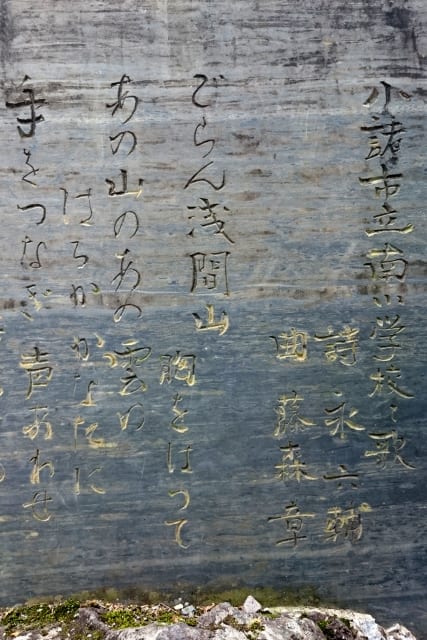 小諸市立南小学校々歌
詩 永六輔
曲 藤森章
ごらん浅間山
胸をはって
あの山のあの雲の
はるかかなたに
手をつなぎ 声あわせ